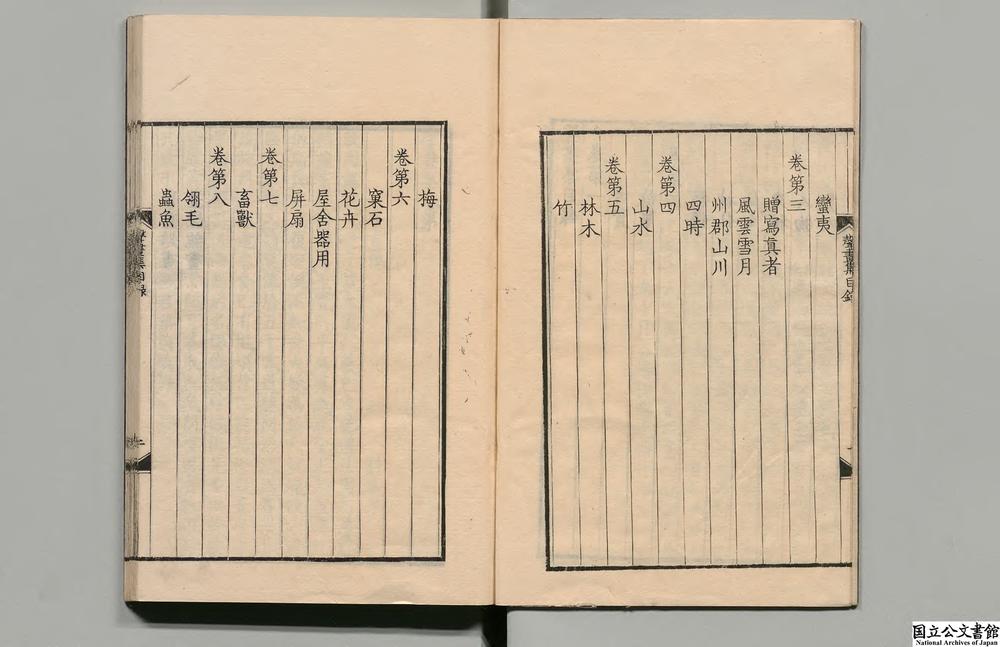 蠻夷
卷第三
贈寫真者
風雲雪月
州郡山川
四時
卷第四
山水
卷第五
林木
竹
梅
卷第六
窠石
花卉
屋舍器用
屏扇
卷第七
畜獸
卷第八
翎毛
蟲魚
聲畫集目錄
國立公文書館
National Archives of Japan